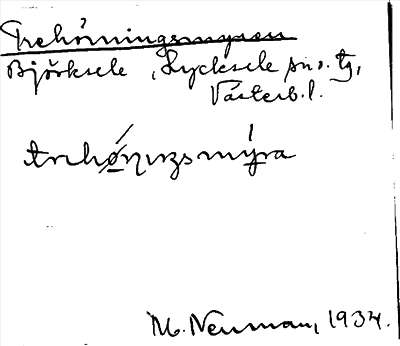 Trehörningsmyran
Björksele, Lycksele sns. tg,
Västerb. l.
trehø̜ṇıŋsmýra
M. Neuman, 1934.